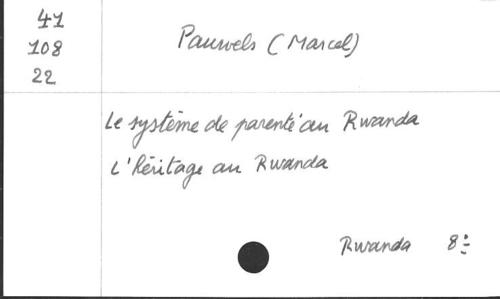 41
108
22
Pauwels (Marcel)
Le système de parenté au Rwanda
L'héritage au Rwanda
Rwanda 8º